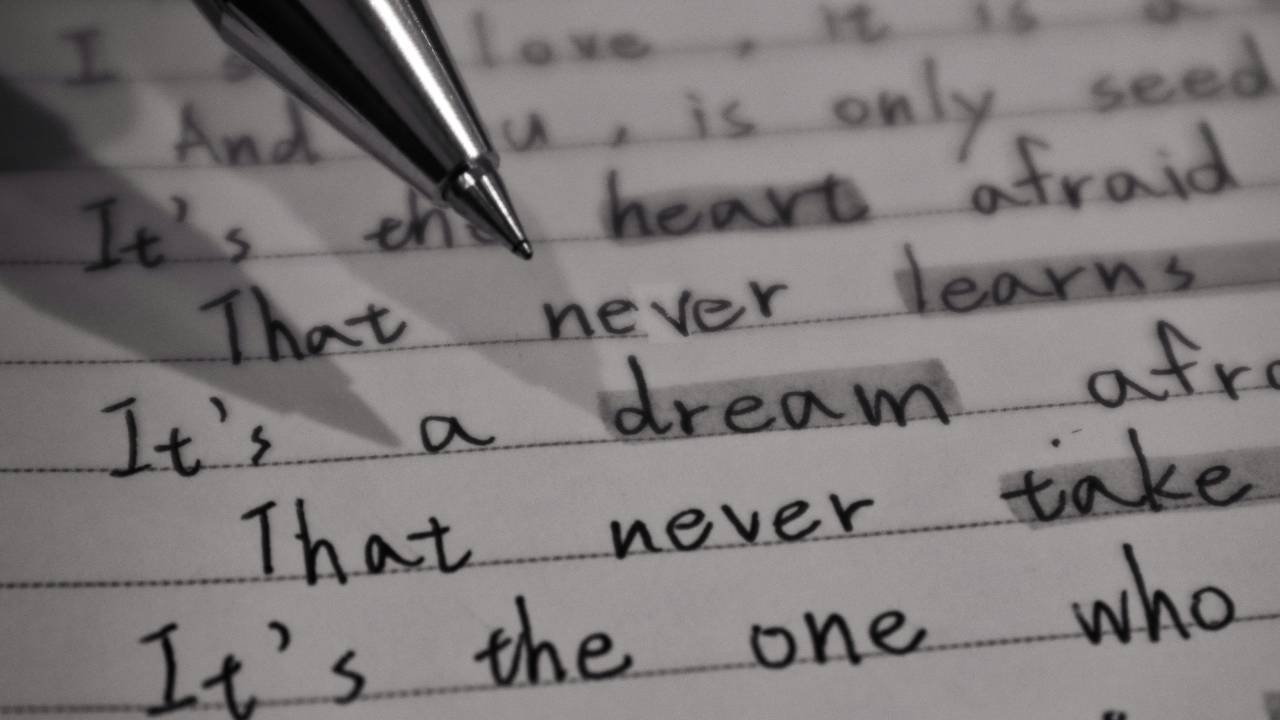 I s love, it is a
And u, is only seed
It's the heart afraid
That never learns
It's a dream afra
That never take
It's the one who